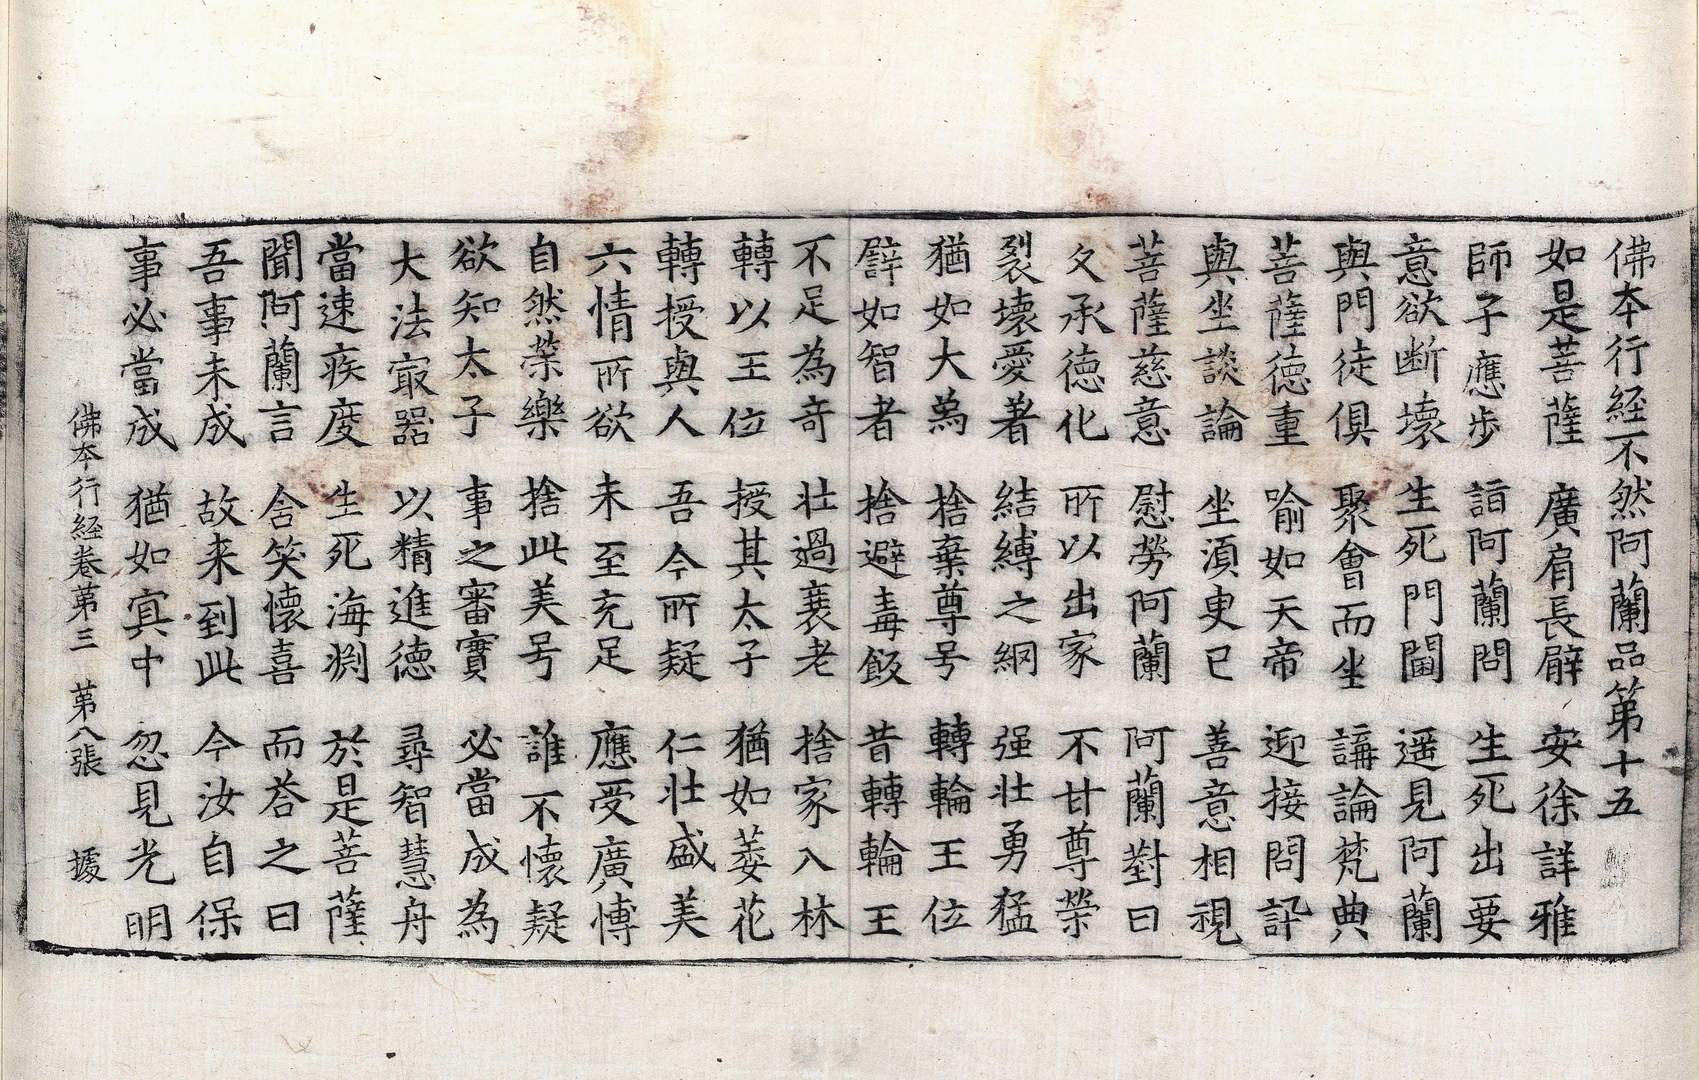 佛本行經不然阿蘭品第十五
如是菩薩 廣肩長臂 安徐詳雅
師子應步 詣阿蘭問 生死出要
意欲断壞 生死門閫 遥見阿蘭
與門徒俱 聚會而坐 講論梵典
菩薩德重 喻如天帝 迎接問訊
與坐談論 坐湏臾已 善意相視
菩薩慈意 慰勞阿蘭 阿蘭對曰
久承德化 所以出家 不甘尊榮
裂壞愛著 結縛之網 强壮勇猛
猶如大為 捨棄尊号 轉輪王位
譬如智者 捨避毒飯 昔轉輪王
不足為奇 壮過衰老 捨家入林
轉以王位 授其太子 猶如萎花
轉授與人 吾今所疑 仁壮盛美
六情所欲 未至充足 應受廣博
自然榮樂 捨此美号 誰不懷疑
欲知太子 事之審實 必當成為
大法㝡器 以精進德 尋智慧舟
當速疾度 生死海渕 於是菩薩
聞阿蘭言 含笑懷喜 而答之曰
吾事未成 故来到此 今汝自保
事必當成 猶如冥中 忽見光明
佛本行經卷第三 第八張 援